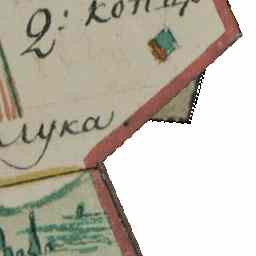 2: копир
мука.